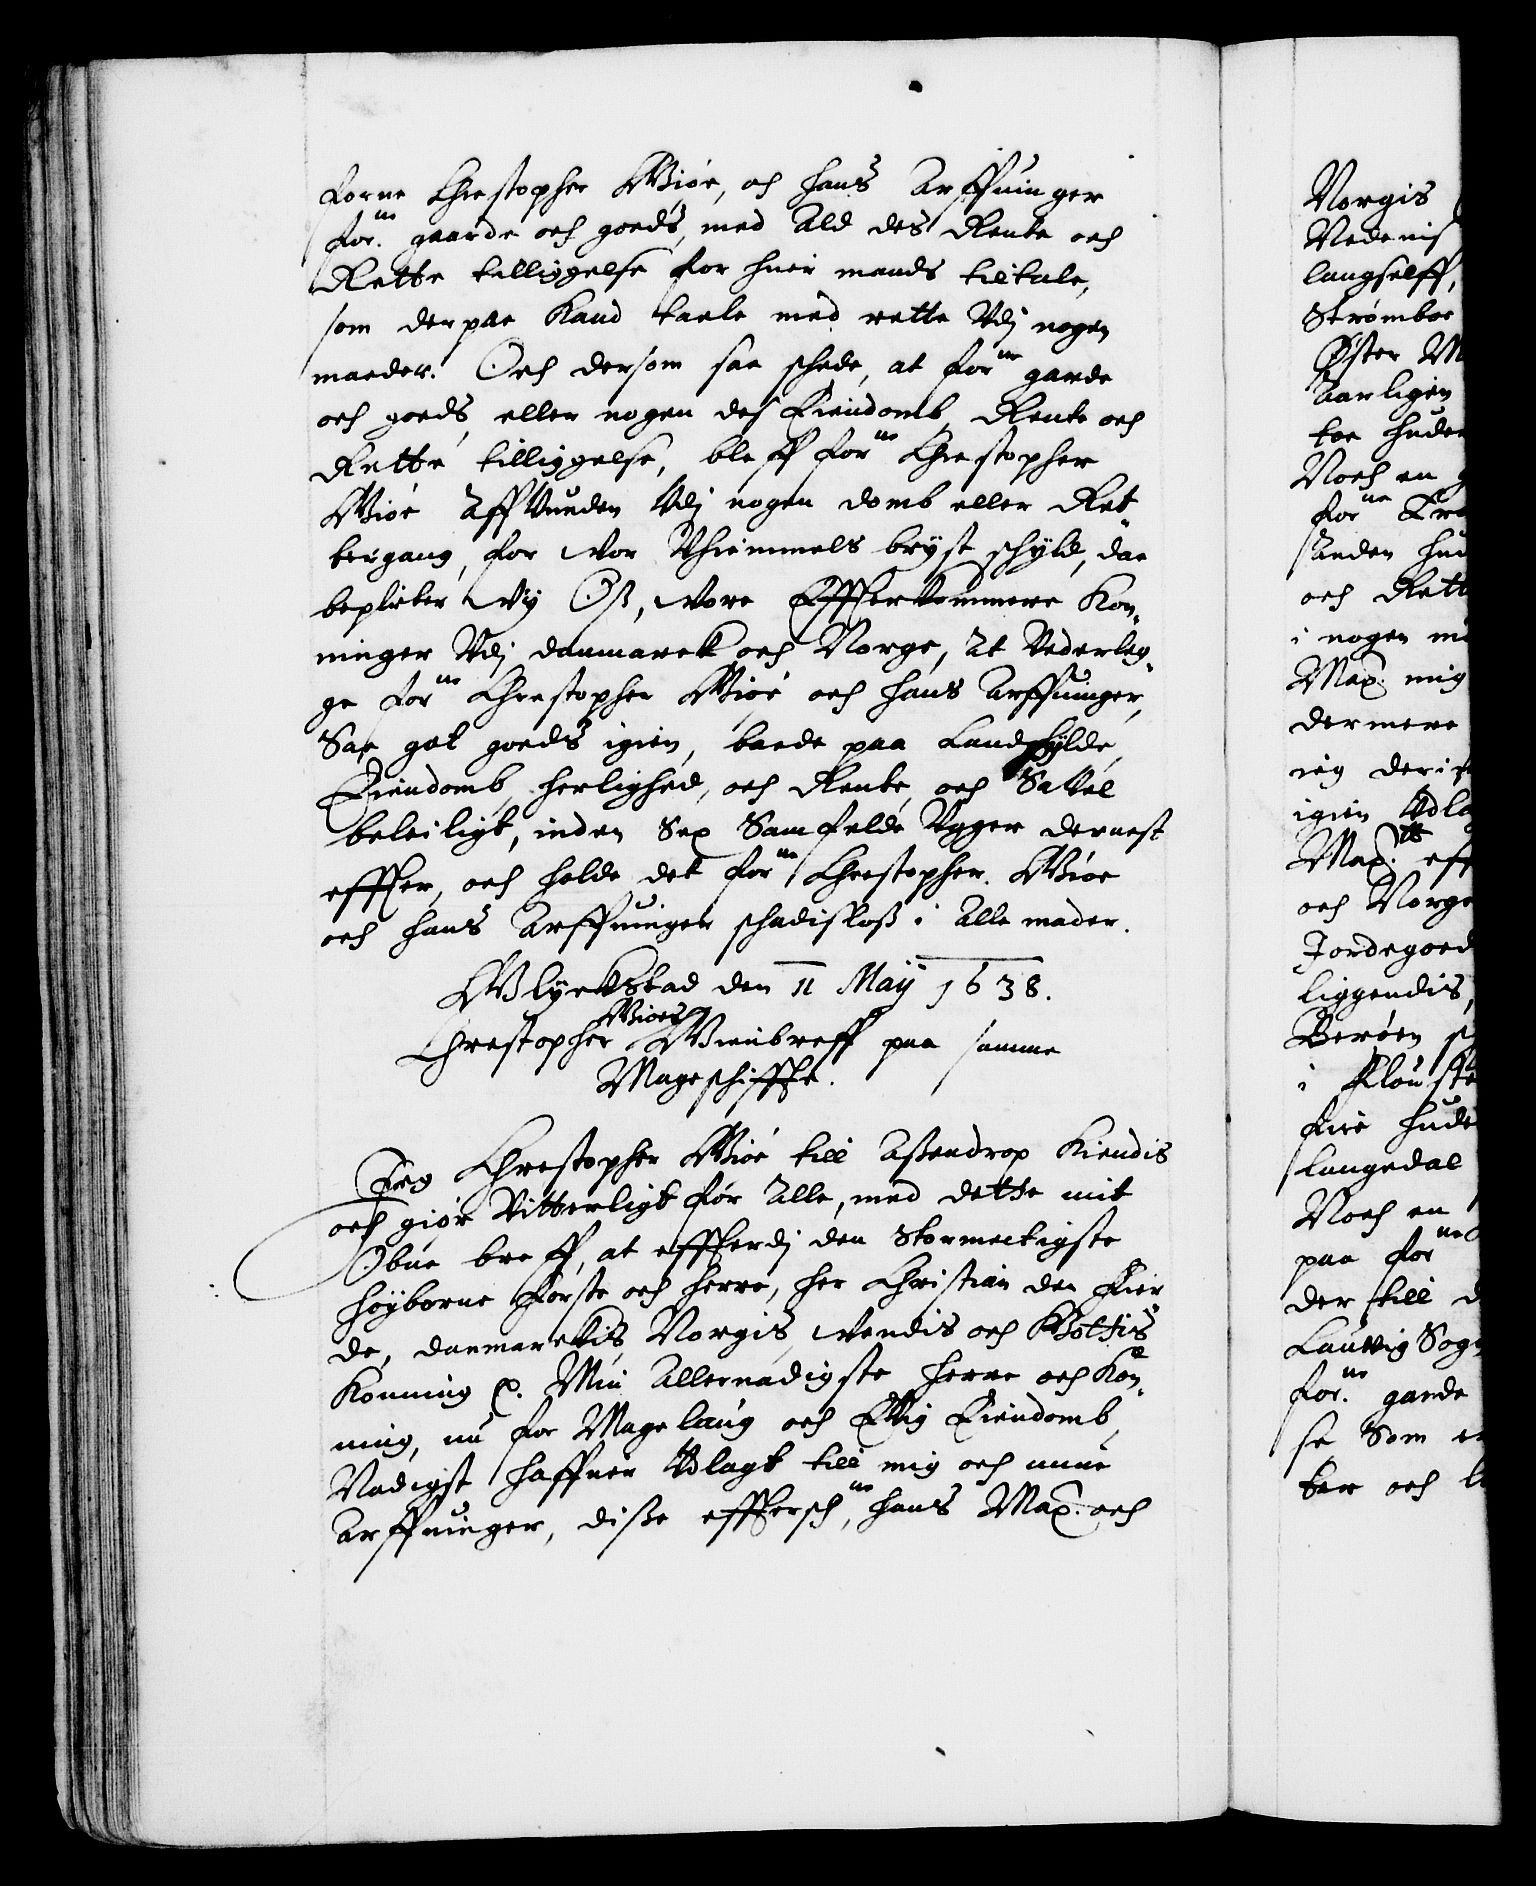 forne Christopher Giøe, och hans Arffuinger
forne gaarde och goeds, med Ald des Rente och
Rette tilliggelse for huer mands tiltale,
som der paa Kand taele med rette Udj nogen
maeder. Och dersom saa schede, at forne gaarde
och goeds eller nogen des Eiendomb, Rente och
Rette tilliggelse, bleff forne Christopher
Giøe Affvunden Udj nogen domb eller Ret¬
tergang, for vor Vhiemmels bryst schyld, daa
beplicter Vij Oß, vore Effterkommere Kon¬
ninger Udj danmarck och Norge, At Vederleg¬
ge forne Christopher Giøe och hans Arffuinger,
Saa got goeds igien, baade paa Landschylde,
Eiendomb, herlighed, och Rente, och Sa Vel
beleiligt, inden Sex Samfelde Vger dernest
effter, och holde det forne Christopher Giøe
och hans Arffuinger schadisløß i Alle mader.
Glyckstad den 11 Maij 1638.
Christopher Giøes Gienbreff paa samme
Mageschiffte.
Jeg Christopher Giøe till Aßendrop Kiendis
och giør Vitterligt for Alle, med dette mit
Obne breff, at effterdj den Stormectigste
høyborne Første och herre, her Christian den Fier¬
de, danmarckis Norgis, Vendis och Gottis
Konning etc. Min Allernadigste herre och Kon¬
ning, nu for Magelaug och Evig Eiendomb,
Nadigst haffuer Udlagt till mig och mine
Arffuinger, diße effterschne, hans Maytt. och
Norgis
langselff,
Strømboe
Øster
Aarligen
toe huder
Noch en
forne
Anden
och Rett
i nogen
Maytt. mig
dermere
ieg der
igien Udla
Maytts eff
och Norge
Jordegoed
liggendis,
i
fire hude
Langedal
Noch en
paa forne
der till
Laurvig Sogn
forne gaarde
se Som
ter och